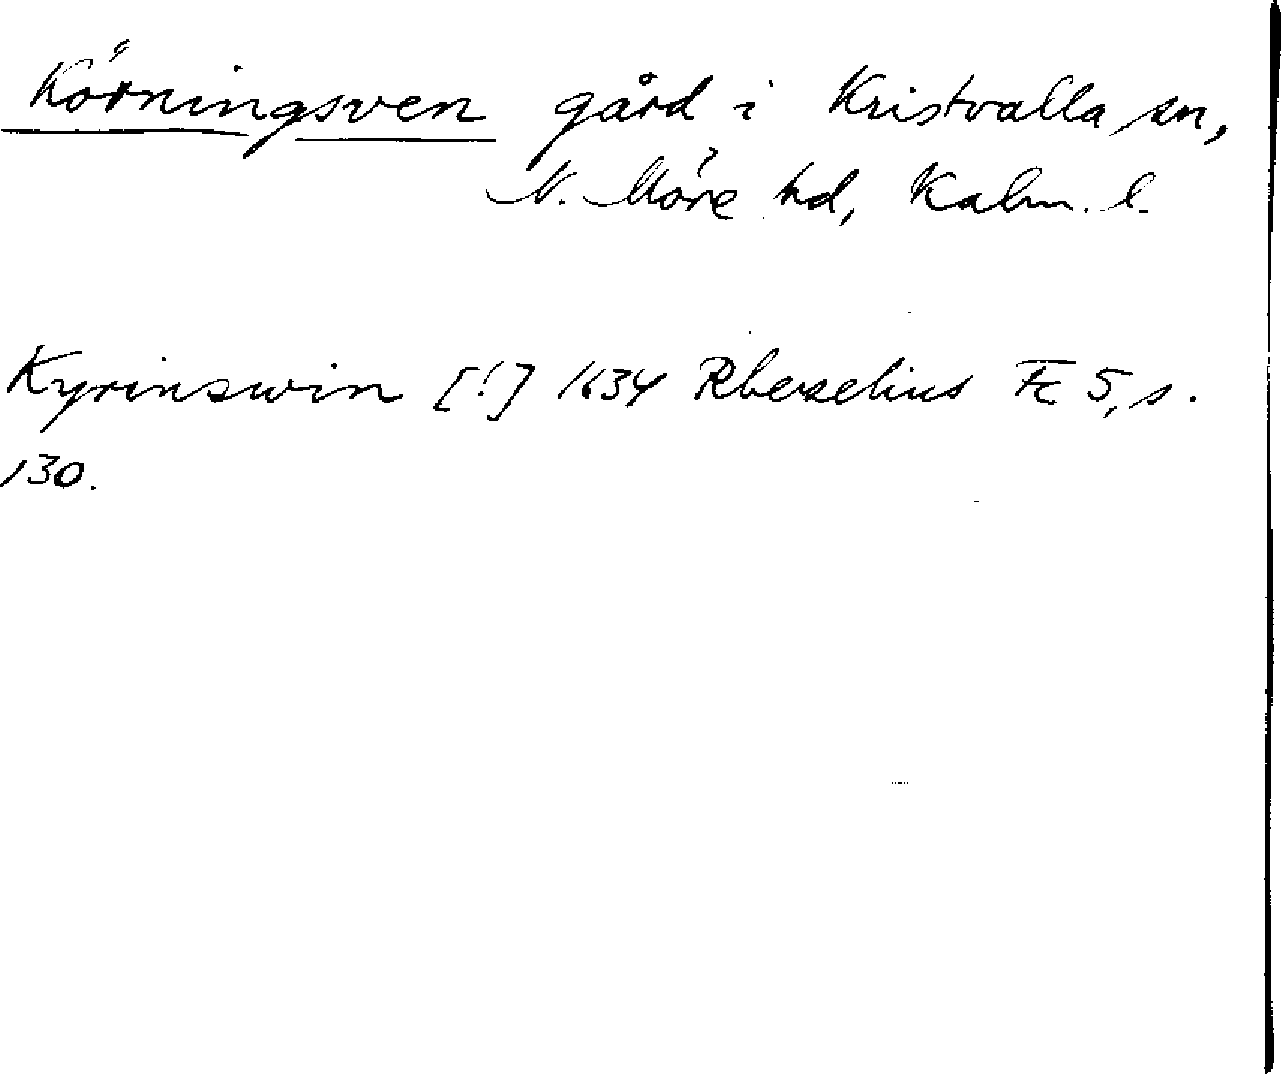 Körningsven gård i Kristvalla sn,
N. Möre hd, Kalm. l.
Kyrinswin [!] 1634 Rhezelius Fc 5, s.
130.